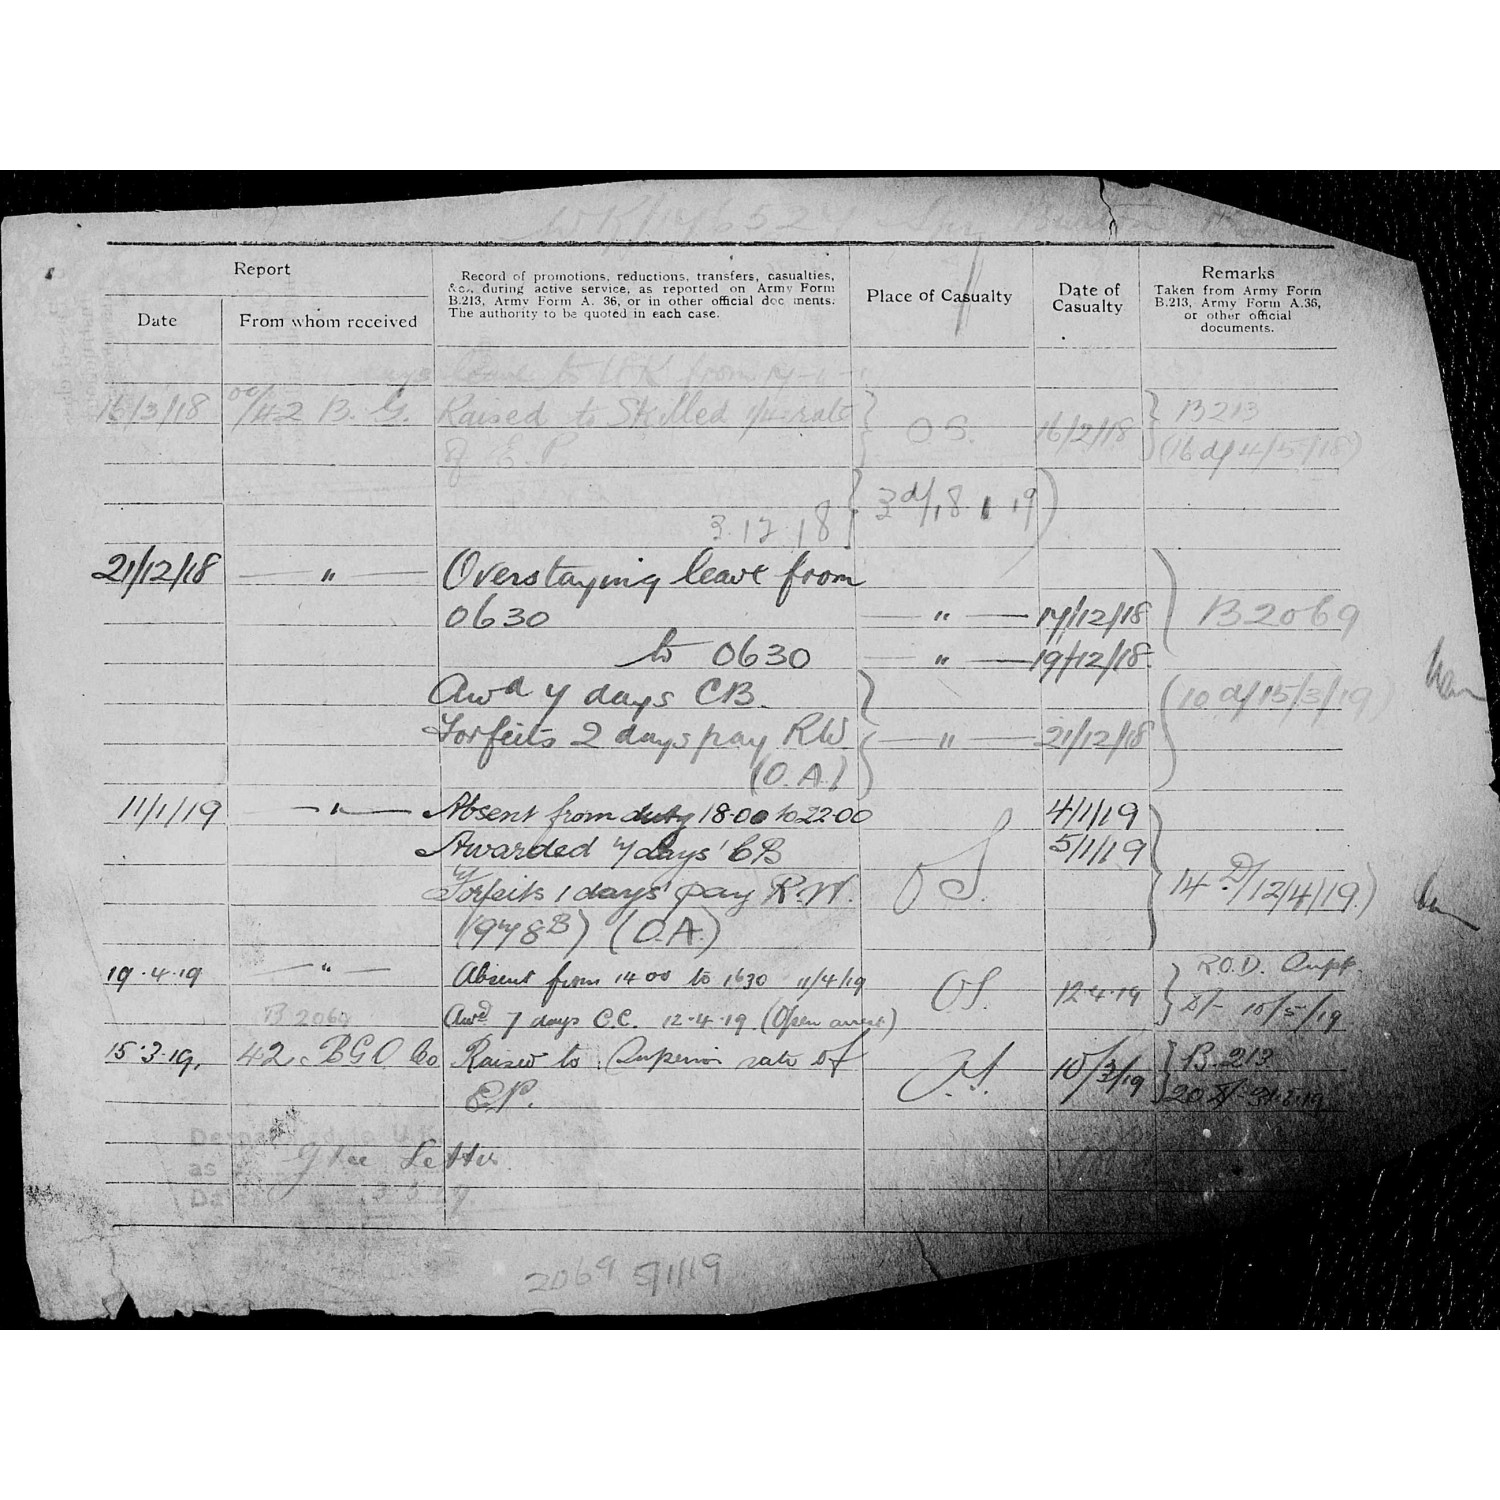 WR/176527 Spr
Report
Date
From whom received
Record of promotions, reductions, transfers, casualties,
&c., during active service, as reported on Army Form
B.213, Army Form A. 36, or in other official doc ments.
The authority to be quoted in each case.
Place of Casualty
Date of
Casualty
Remarks
Taken from Army Form
B.213, Army Form A.36,
or other official
documents.
leave to UK from
16/3/18 oc/42 B. G. Raised to Skilled rate O S. 16/2/18 B213
of E. P. (16 d/4/5/18)
3.12.18 3 d/18 1 19)
21/12/18 " Overstaying leave from
0630 " 17/12/18 B2069
to 0630 " 19/12/18
Awd 7 days CB. (10 d/15/3/19)
Forfeits 2 days pay RW " 21/12/18
(O.A.)
11/1/19 " Absent from duty 18.00 to 22.00 4/1/19
Awarded 7 days' CB 5/1/19
Forfeits 1 days' pay R.W. OS. 14 D/12/4/19)
(1978B) (O.A.)
19.4.19 " Absent from 14 00 to 1630 11/4/19 OS. 12.4.19 R.O.D. Supt.
B 2069 Awd 7 days C.C. 12.4.19 (Open arrest) 8/- 10/5/19
15.3.19. 42 BGO Co Raised to Superior rate of O.S. 10/3/19 B.213
E.P. 20
Despatched to U.K.
as Letter
Date
2069 5/1/19